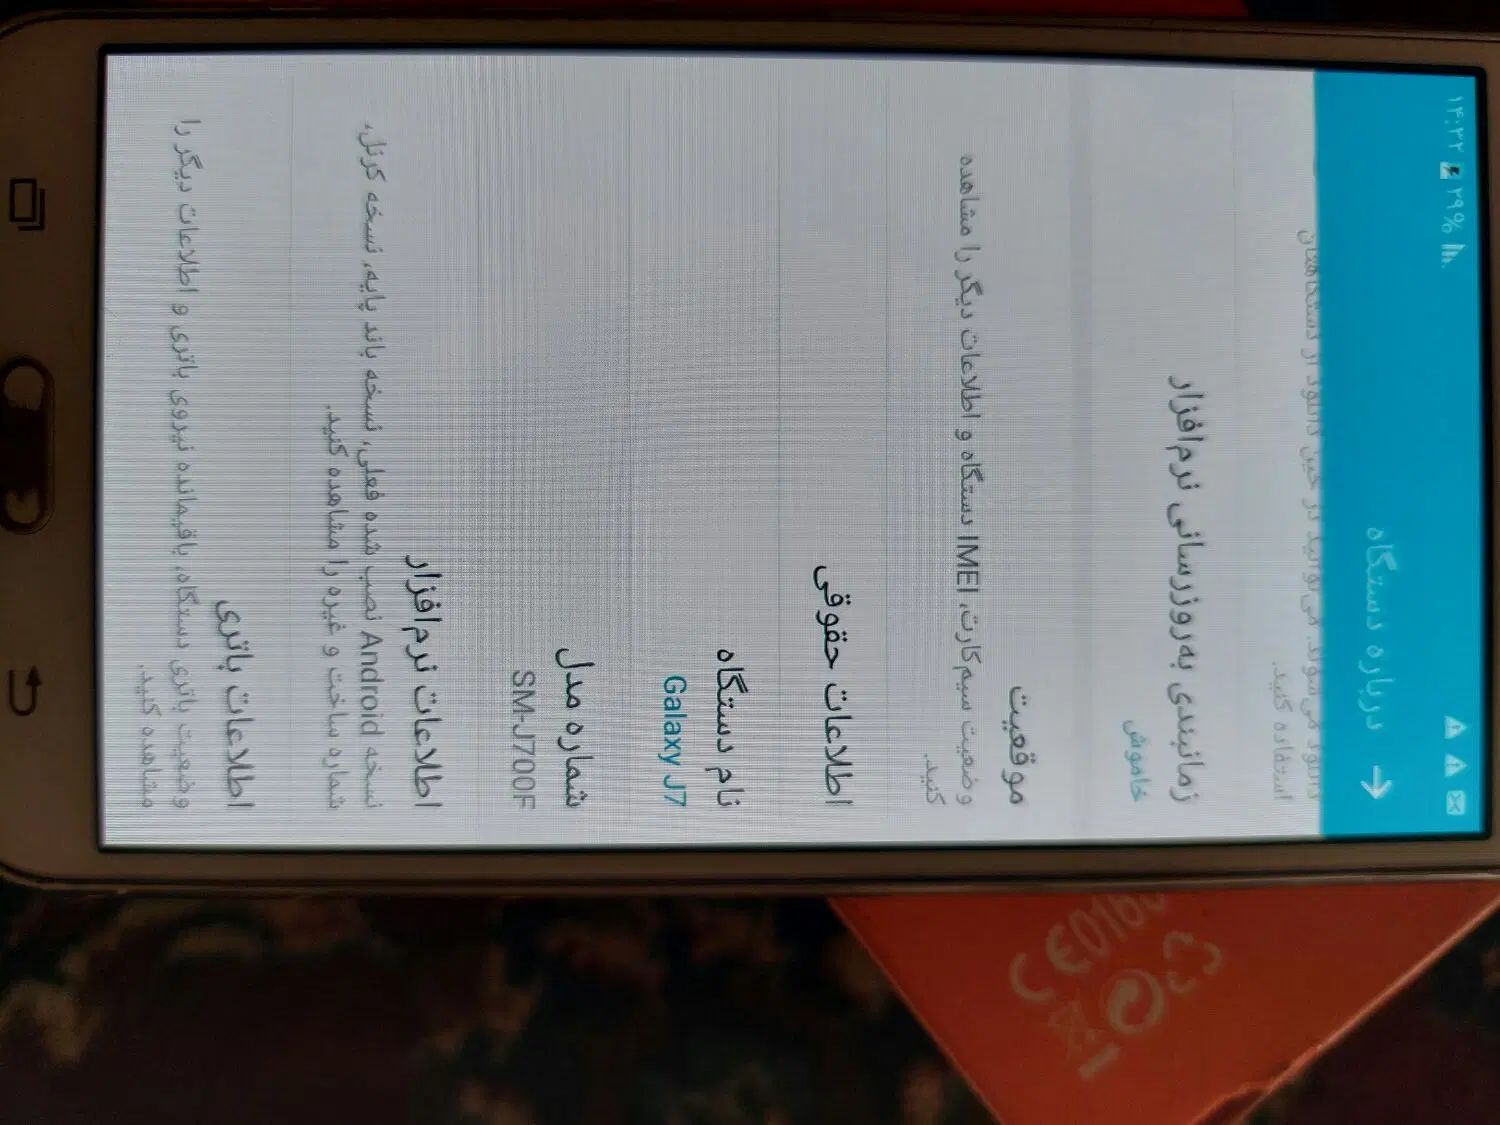 ۱۴:۲۲ ۲۹%
درباره دستگاه
دانلود می‌شوند. می‌توانید در حین دانلود از دستگاهتان
استفاده کنید.
زمانبندی به‌روزرسانی نرم‌افزار
خاموش
موقعیت
وضعیت سیم‌کارت، IMEI دستگاه و اطلاعات دیگر را مشاهده
کنید.
اطلاعات حقوقی
نام دستگاه
Galaxy J7
شماره مدل
SM-J700F
اطلاعات نرم‌افزار
نسخه Android نصب شده فعلی، نسخه باند پایه، نسخه کرنل،
شماره ساخت و غیره را مشاهده کنید.
اطلاعات باتری
وضعیت باتری دستگاه، باقیمانده نیروی باتری و اطلاعات دیگر را
مشاهده کنید.
CE0168